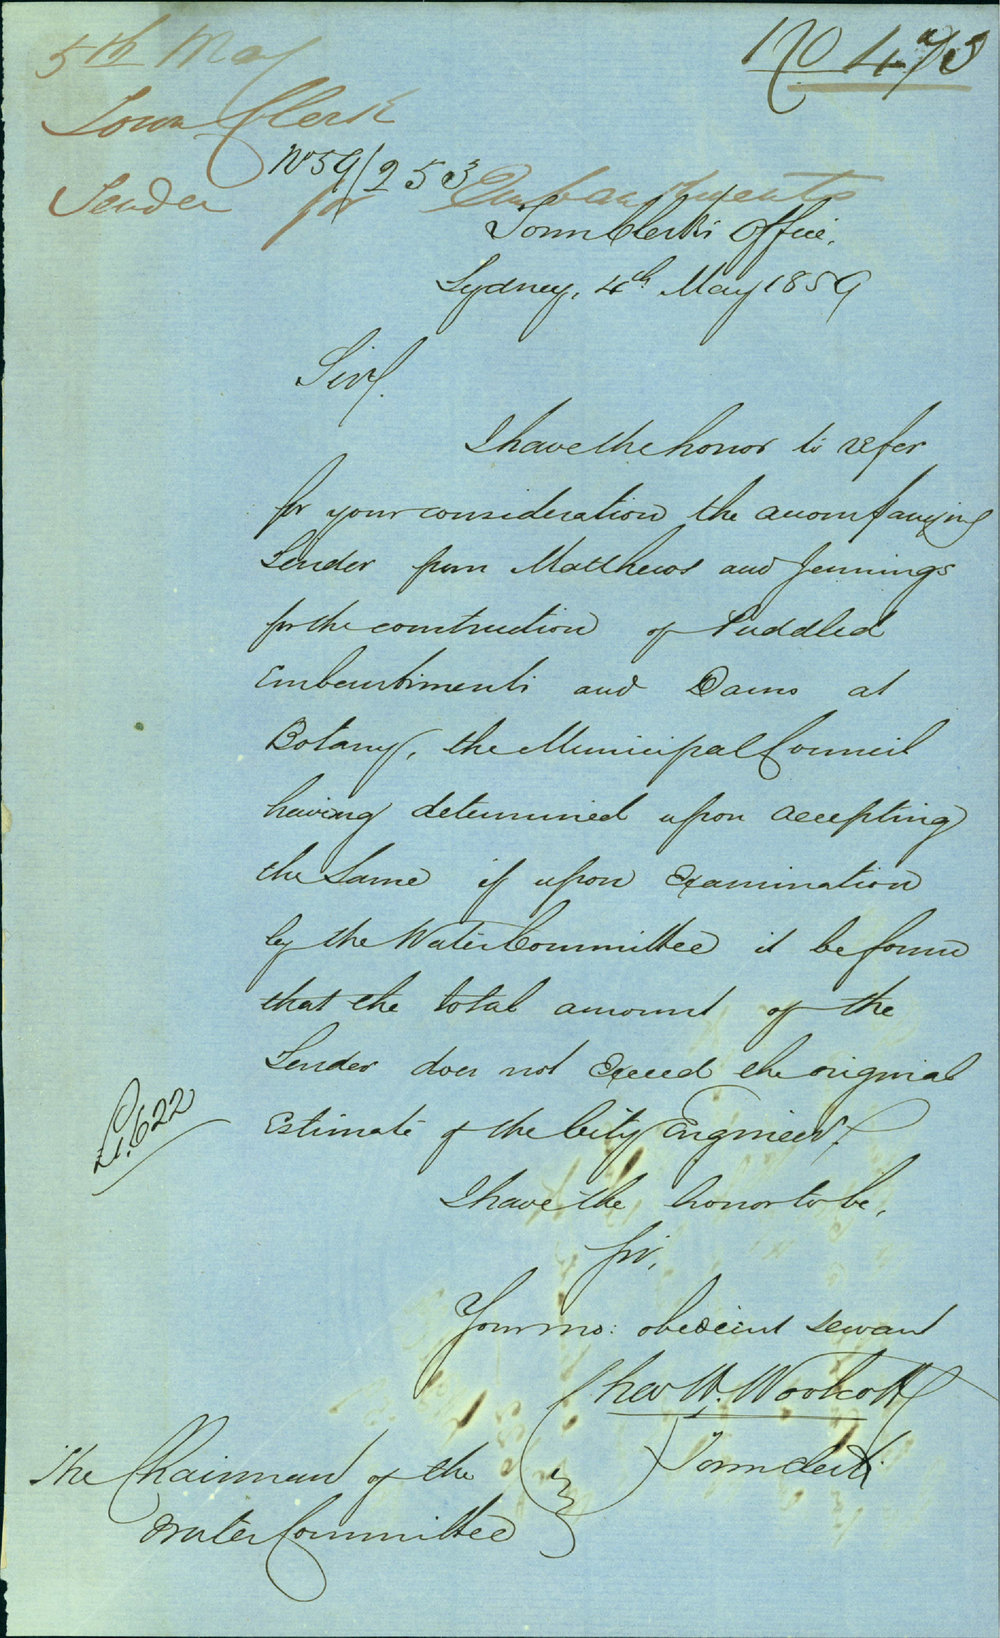 No 473
5th May
Town Clerk
No 59/253
Tender for Embankments
Town Clerk's Office,
Sydney, 4th May 1859
Sir,
I have the honor to refer
for your consideration the accompanying
Tender from Matthews and Jennings
for the construction of Puddled
Embankments and Dams at
Botany, the Municipal Council
having determined upon accepting
the Same if upon Examination
by the Water Committee it be found
that the total amount of the
Tender does not Exceed the original
Estimate of the City Engineer.
£1.622
I have the honor to be,
Sir,
Your mo: obedient servant
Chas H. Woolcott
Town Clerk
The Chairman of the
Water Committee